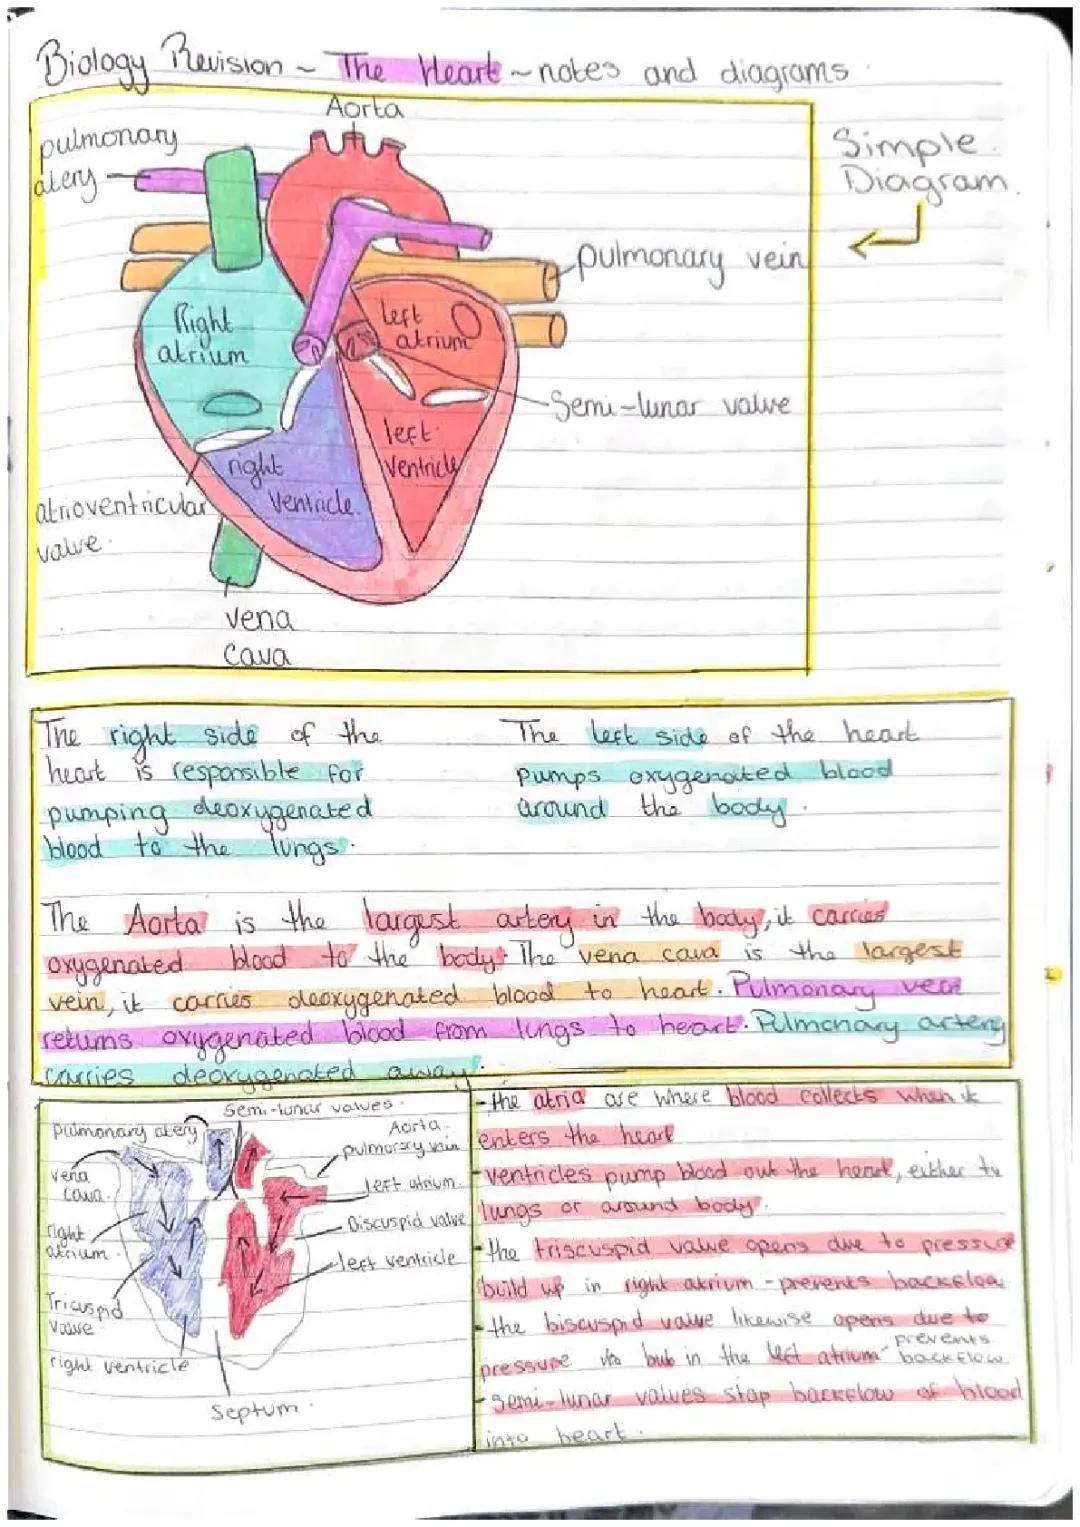 Biology Revision ~ The Heart ~ notes and diagrams.
Aorta
pulmonary
atery
Simple
Diagram.
pulmonary vein
Right
atrium
left
atrium
Semi-lunar valve
left
ventricle
right
ventricle.
atrioventricular
valve.
vena
cava
The right side of the
heart is responsible for
pumping deoxygenated
blood to the lungs.
The left side of the heart
pumps oxygenated blood
around the body.
The Aorta is the largest artery in the body, it carries
oxygenated blood to the body. The vena cava is the largest
vein, it carries deoxygenated blood to heart. Pulmonary vein
returns oxygenated blood from lungs to heart. Pulmonary artery
carries deoxygenated away.
Semi-lunar valves.
pulmonary atery
Aorta.
pulmonary vein
vena
cava.
left atrium
right
atrium.
Biscuspid valve
left ventricle
Tricuspid
valve
right ventricle
Septum.
-the atria are where blood collects when it
enters the heart
-ventricles pump blood out the heart, either to
lungs or around body.
-the triscuspid valve opens due to pressure
build up in right atrium - prevents backflow
-the biscuspid valve likewise opens due to
pressure but in the left atrium - prevents
backflow
-semi-lunar valves stop backflow of blood
into heart.